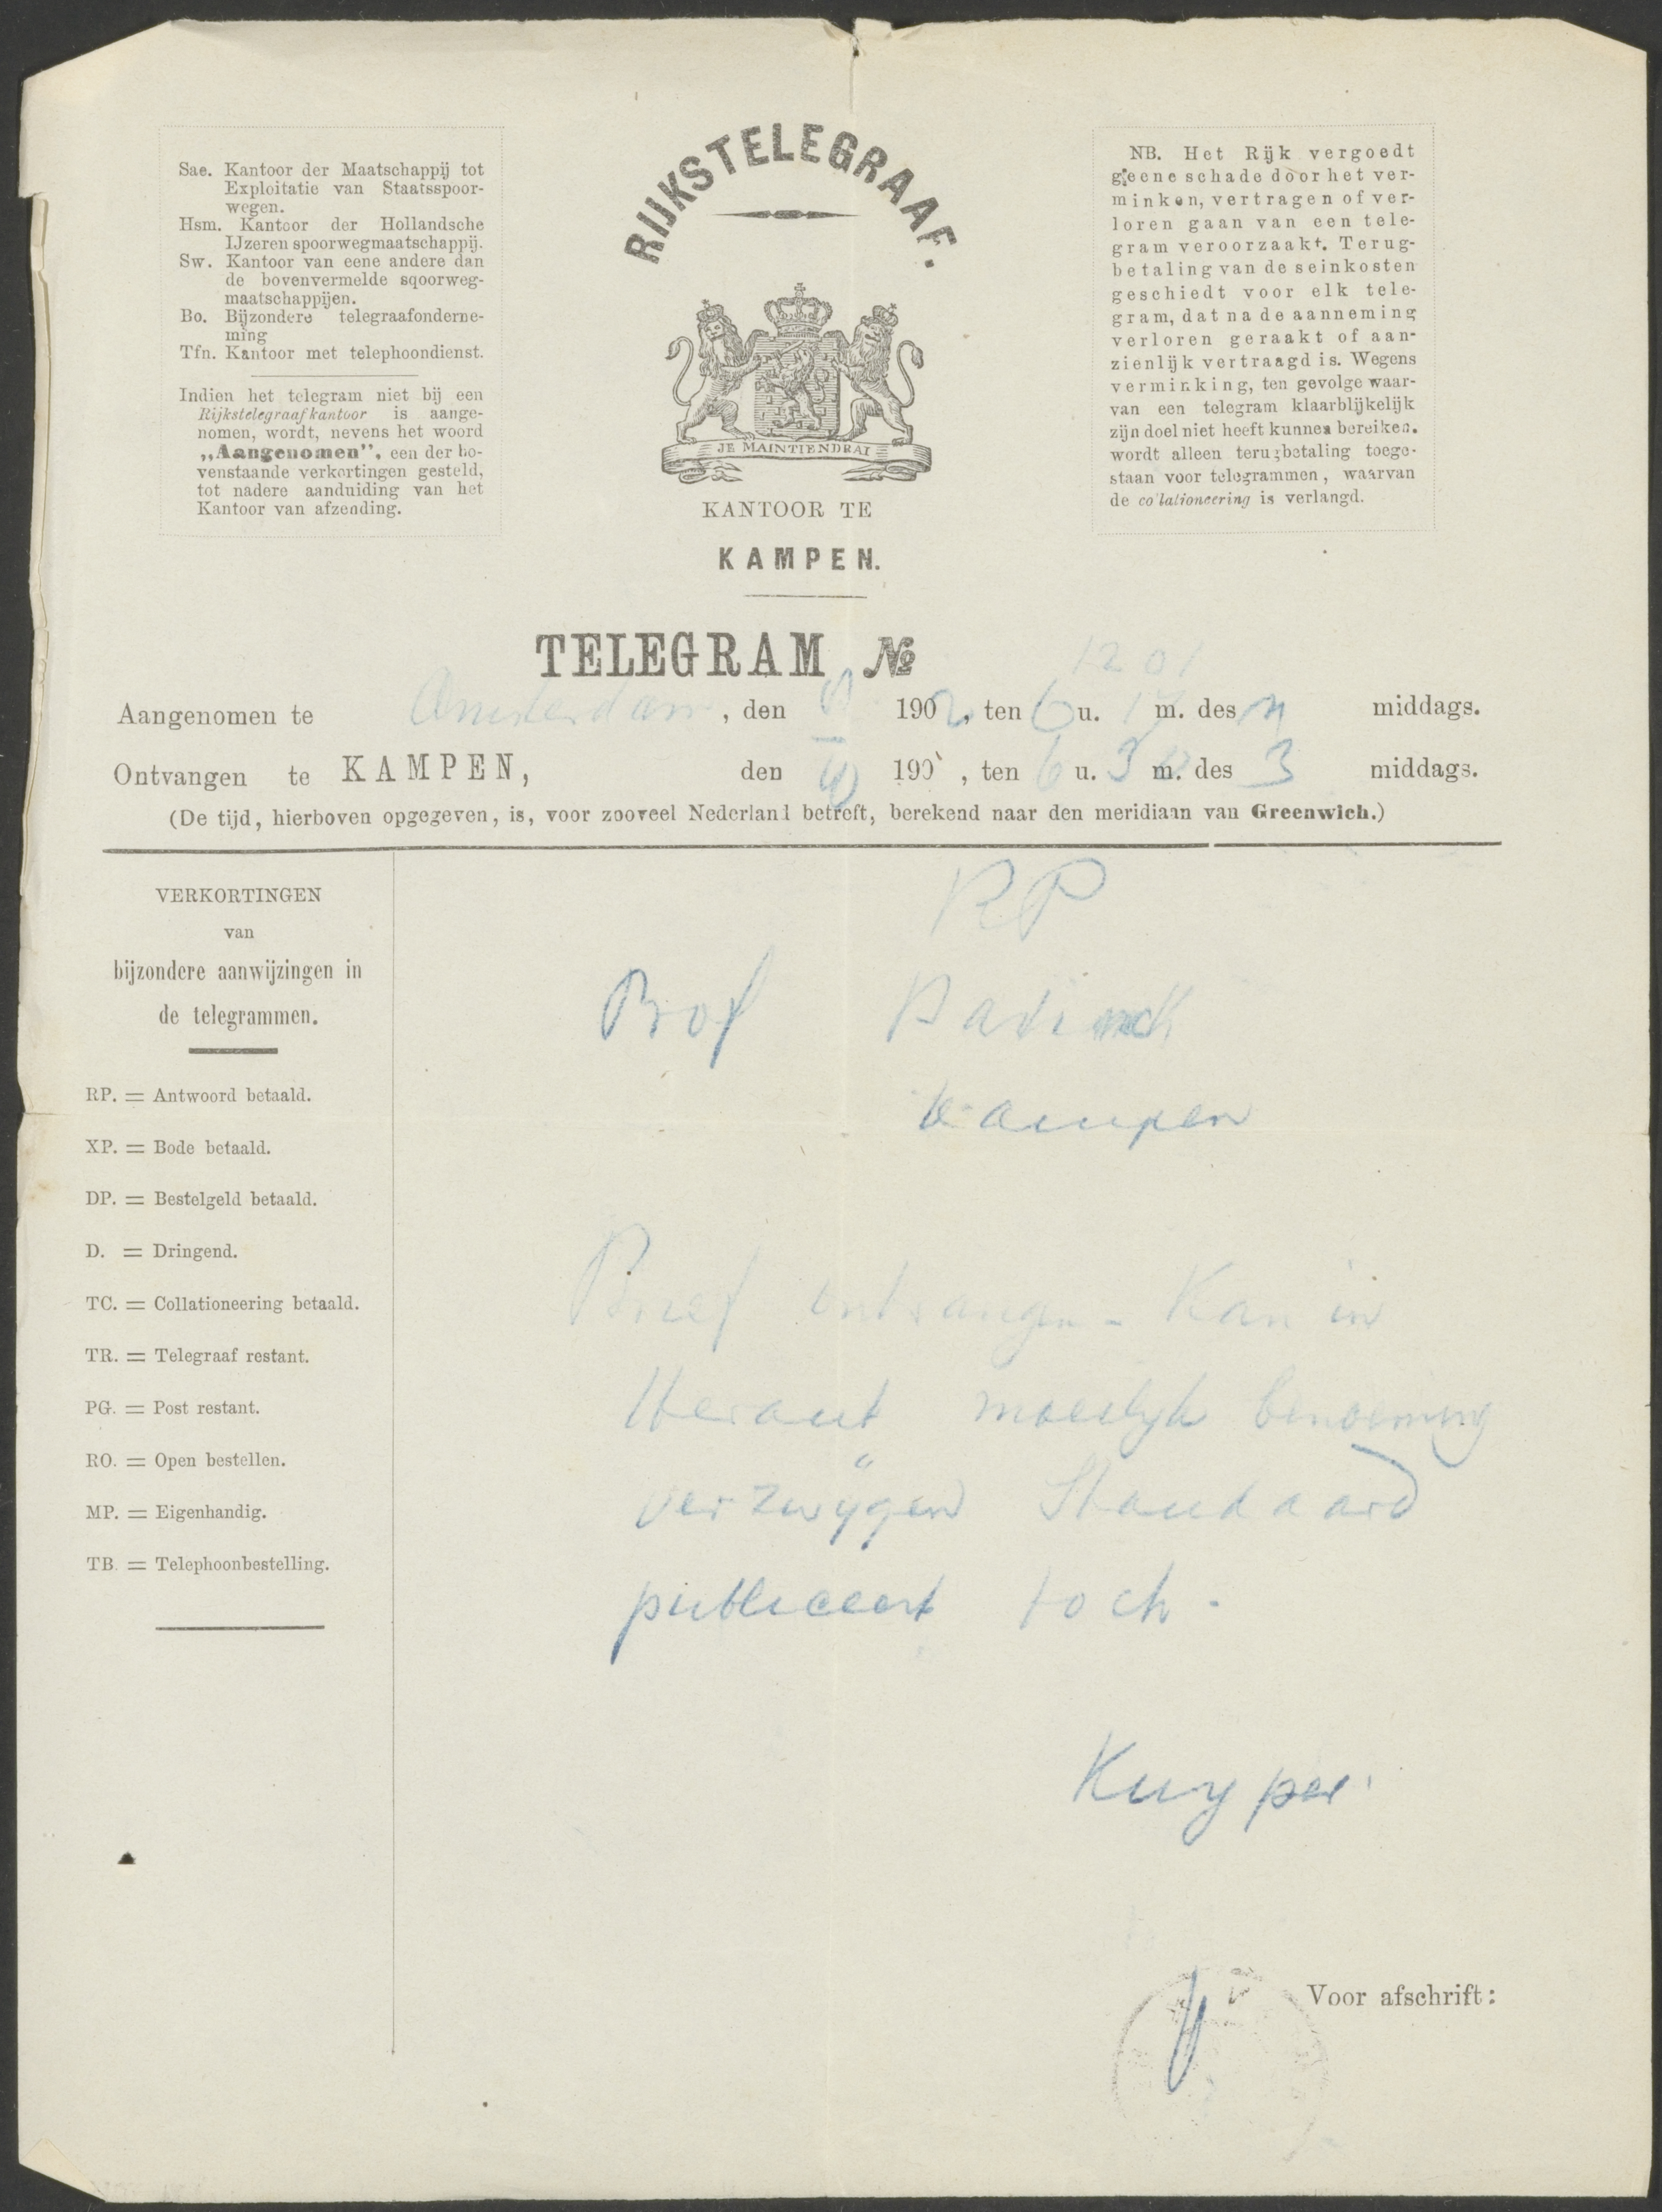 Sae. Kantoor der Maatschappij tot
Exploitatie van Staatsspoor-
wegen.
Hsm. Kantoor der Hollandsche
IJzeren spoorwegmaatschappij.
Sw. Kantoor van eene andere dan
de bovenvermelde sqoorweg-
maatschappijen.
Bo. Bijzondere telegraafonderne-
ming
Tfn. Kantoor met telephoondienst.
Indien het telegram niet bij een
Rijkstelegraafkantoor is aange-
nomen, wordt, nevens het woord
„Aangenomen", een der bo-
venstaande verkortingen gesteld,
tot nadere aanduiding van het
Kantoor van afzending.
RIJKSTELEGRAAF.
JE MAINTIENDRAI
KANTOOR TE
KAMPEN.
NB. Het Rijk vergoedt
geene schade door het ver-
minken, vertragen of ver-
loren gaan van een tele-
gram veroorzaakt. Terug-
betaling van de seinkosten
geschiedt voor elk tele-
gram, dat na de aanneming
verloren geraakt of aan-
zienlijk vertraagd is. Wegens
verminking, ten gevolge waar-
van een telegram klaarblijkelijk
zijn doel niet heeft kunnen bereiken.
wordt alleen terugbetaling toege-
staan voor telegrammen, waarvan
de collationeering is verlangd.
TELEGRAM No 1201
Aangenomen te Amsterdam, den 1902, ten 6 u. m. des n middags.
Ontvangen te KAMPEN, den 190 , ten 6 u. m. des 3 middags.
(De tijd, hierboven opgegeven, is, voor zooveel Nederland betreft, berekend naar den meridiaan van Greenwich.)
VERKORTINGEN
van
bijzondere aanwijzingen in
de telegrammen.
RP. = Antwoord betaald.
XP. = Bode betaald.
DP. = Bestelgeld betaald.
D. = Dringend.
TC. = Collationeering betaald.
TR. = Telegraaf restant.
PG. = Post restant.
RO. = Open bestellen.
MP. = Eigenhandig.
TB. = Telephoonbestelling.
RP
Prof Bavinck
Kampen
Brief ontvangen - Kan in
Heraut moeilijk benoeming
verzwijgen Standaard
publiceert toch.
Kuyper
Voor afschrift: